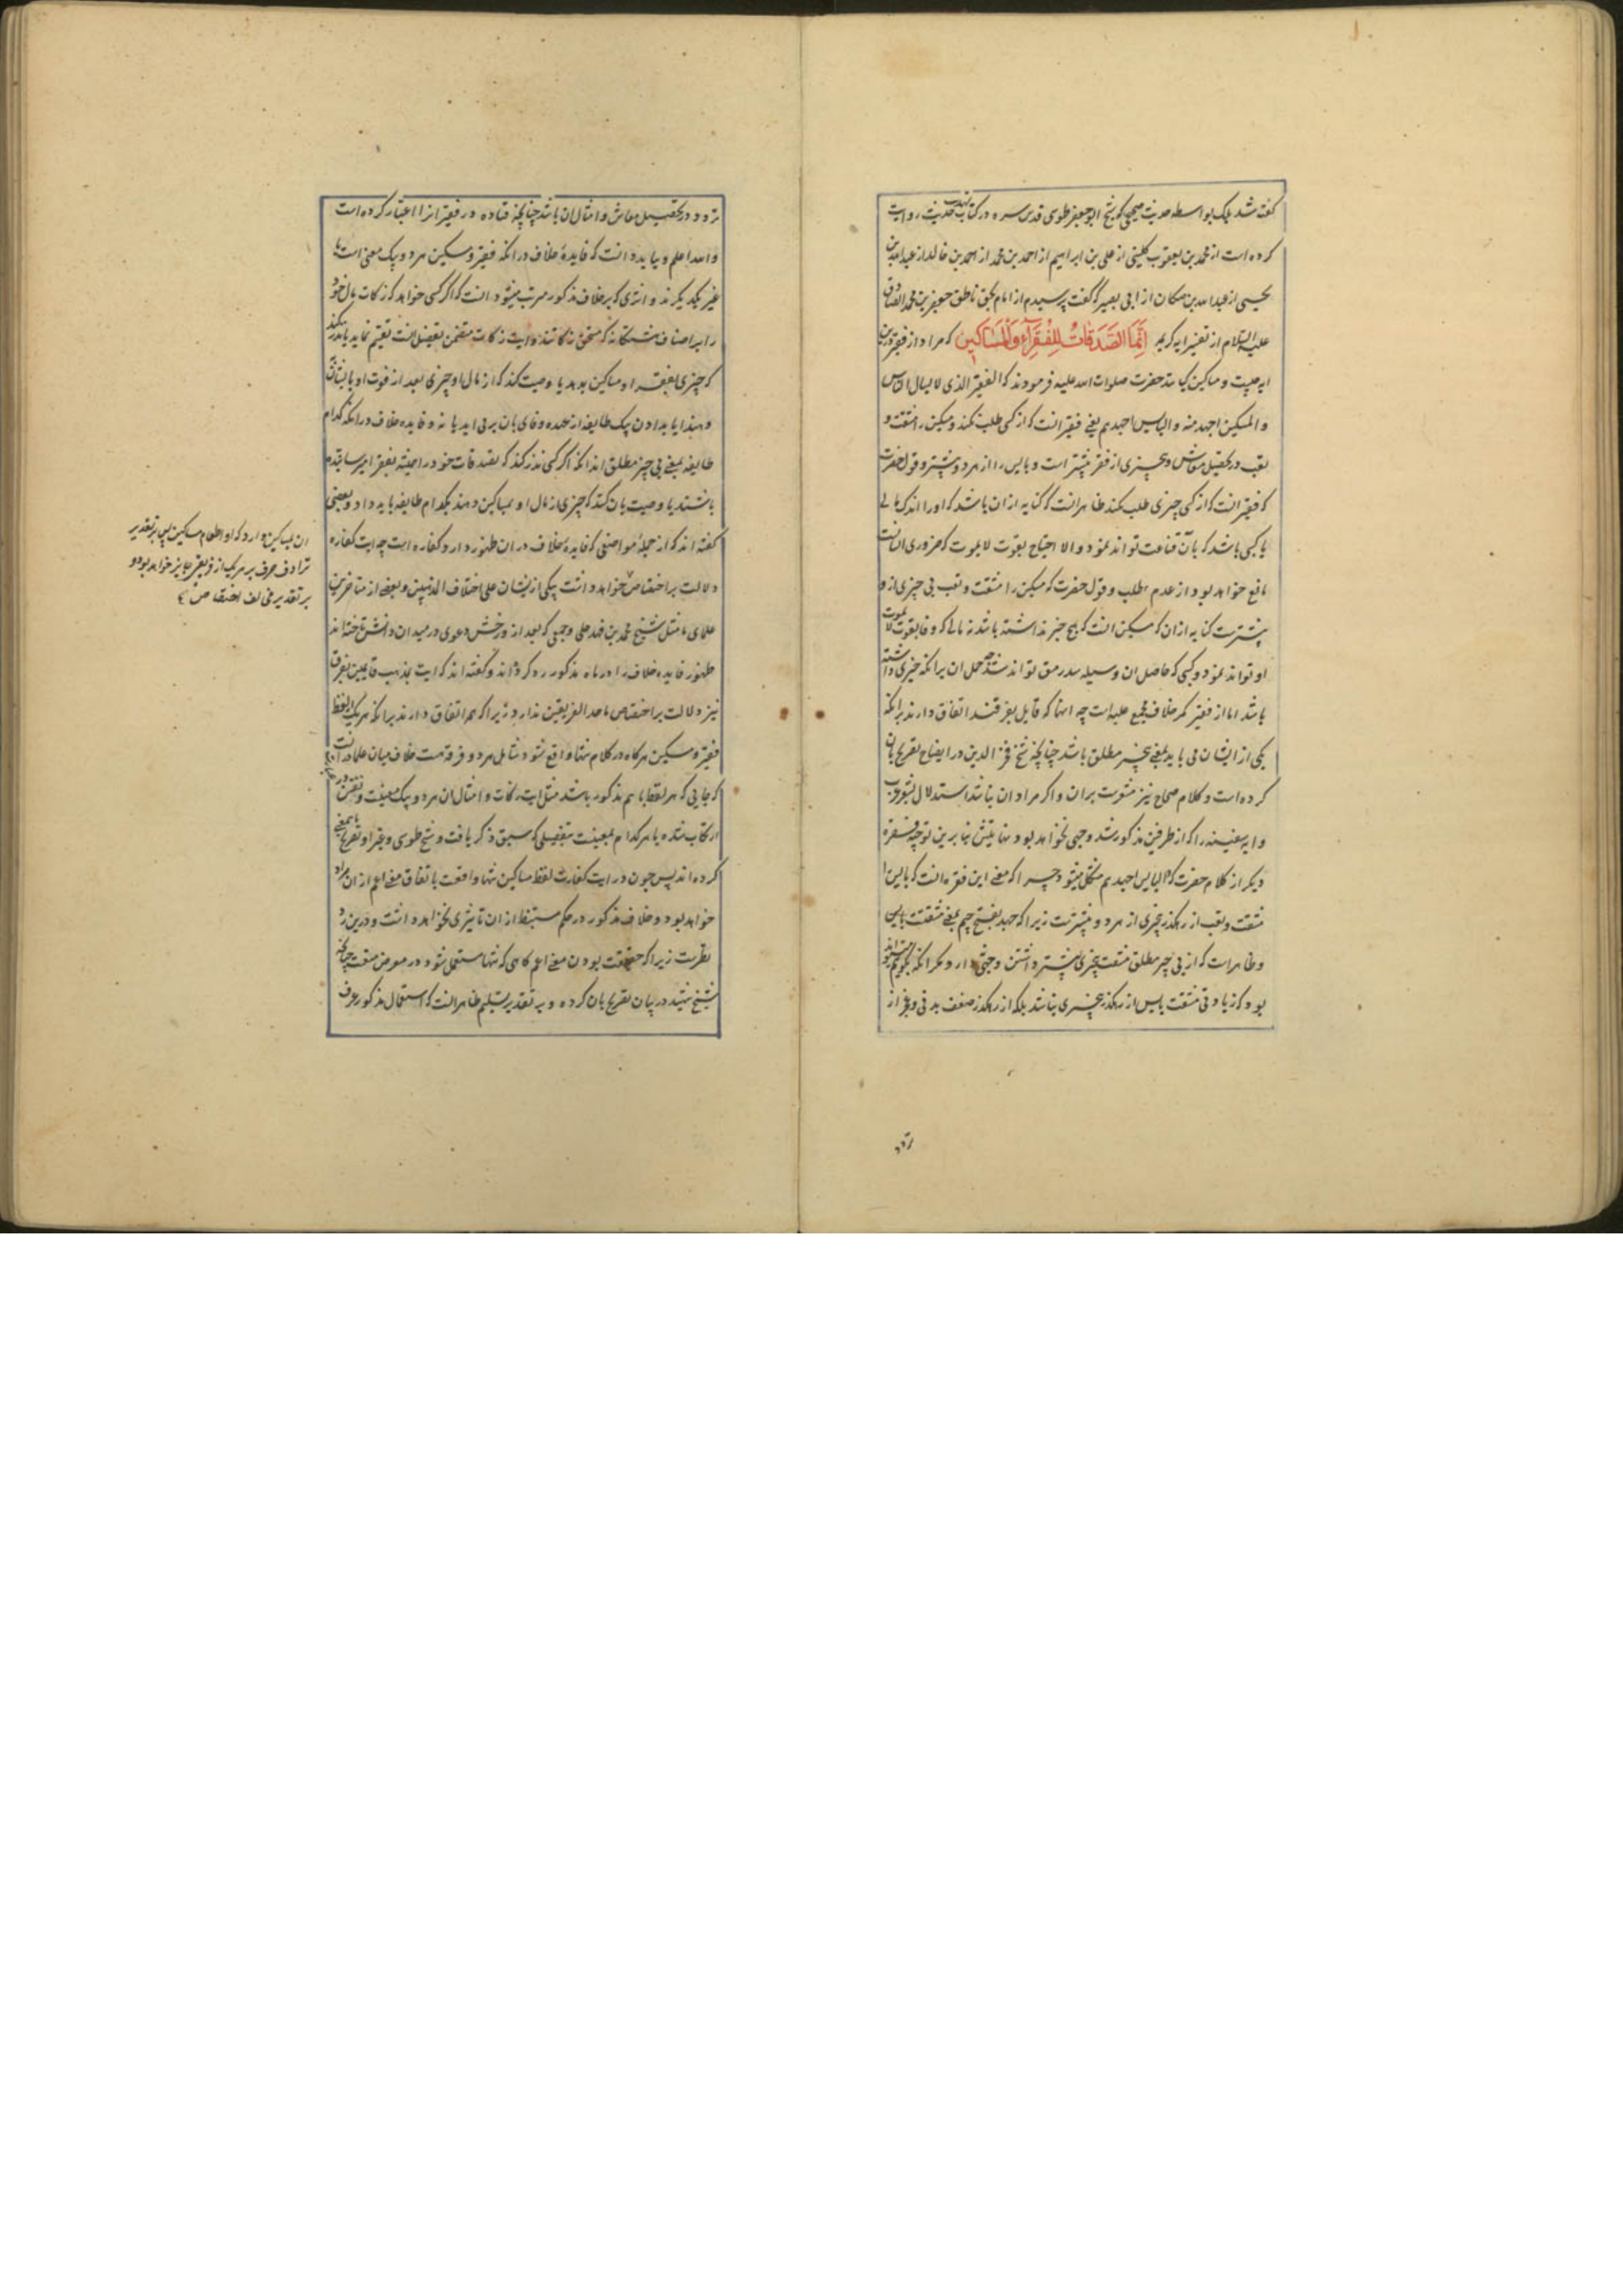 گفته شد بلکه بواسطه حدیث صحیحی که شیخ ابو جعفر طوسی قدس سره در کتاب تهذیب حدیث روایت
کرده است از محمد بن یعقوب کلینی از علی بن ابراهیم از احمد بن محمد از احمد بن خالد از عبدالله بن
یحیی از عبدالله بن مسکان از ابی بصیر که گفت پرسیدم از امام بحق ناطق جعفر بن محمد الصادق
علیه السلام از تفسیر ایه کریمه اِنَّمَا الصَّدَقَاتُ لِلْفُقَرَآءِ وَالْمَسَاكِينِ که مراد از فقیر درین
ایه چیست و مساکین کیانند حضرت صلوات الله علیه فرمودند که الفقیر الذی لا یسال الناس
والمسکین اجهد منه والبایس اجهدهم یعنی فقیر انست که از کسی طلب نکند و مسکین را مشقت و
تعب در تحصیل معاش و بچیزی از فقیر بیشتر است و بایس را از هر دو بیشتر و قول حضرت
که فقیر انست که از کسی چیزی طلب نکند ظاهر انست که کنایه از ان باشد که او را اندک مالی
یا کسبی باشد که بآن قناعت تواند نمود والا احتیاج بقوت لا یموت که ضروری انسانست
مانع خواهد بود از عدم طلب و قول حضرت که مسکین را مشقت و تعب بی چیزی ازو
بیشترست کنایه از ان که مسکین انست که هیچ چیز نداشته باشد نه مالی که وفا بقوت لا یموت
او تواند نمود و کسبی که حاصل ان وسیله سد رمق تواند شد چه حمل ان برانکه چیزی داشته
باشد اما از فقیر کمتر خلاف مجمع علیه است چه انها که قایل بفرقند اتفاق دارند برانکه
یکی از ایشان می باید بمعنی بیچیز مطلق باشد چنانچه شیخ فخر الدین در ایضاح تصریح بان
کرده است و کلام صحاح نیز مشعرست بران و اگر مراد ان نباشد استدلال بشعر عرب
و ایه سفینه را که از طرفین مذکور شد وجهی نخواهد بود نهایتش بنابرین توجیه فقره
دیگر از کلام حضرت که البایس اجهدهم مشکل میشود چرا که معنی این فقره انست که بایس را
مشقت و تعب از رهگذر بیچیزی از هر دو بیشترست زیرا که جهد بفتح جیم بمعنی مشقتست
و ظاهر است که از بی چیز مطلق مشقت بیچیزی بیشتر داشتن وجهی ندارد مگر انکه بگوییم
بود که زیادتی مشقت بایس از رهگذر بیچیزی نباشد بلکه از رهگذر ضعف بدنی و غیر از
تردد
تردد در تحصیل معاش و امثال ان باشد چنانچه قتاده در فقیر انرا اعتبار کرده است
والله اعلم و بباید دانست که فایده خلاف در انکه فقیر و مسکین هر دو بیک معنی است یا
غیر یکدیگرند و اثری که بر خلاف مذکور مرتب میشود انست که اگر کسی خواهد که زکات مال خود
را بر اصناف هشتگانه که مستحق زکاتند و ایت زکات متضمن تفصیل انست تقسیم نماید یا نذر کند
که چیزی بفقرا و مساکین بدهد یا وصیت کند که از مال او چیزی بعد از فوت او
دهند ایا بدادن یک طایفه از عهده وفای بان برمی اید یا نه و فایده خلاف در انکه کدام
طایفه بمعنی بی چیز مطلق اند انکه اگر کسی نذر کند که تصدقات خود را همیشه بفقرا میرسانیده
باشند یا وصیت بان کند که چیزی از مال او بمساکین دهند بکدام طایفه باید داد و بعضی
گفته اند که از جمله مواضعی که فایده خلاف در ان ظهور دارد کفاره است چه ایت کفاره
دلالت بر اختصاص خواهد داشت بیکی ازیشان علی اختلاف المذهبین و بعضی از متاخرین
علمای ما مثل شیخ محمد بن فهد حلی و جمعی که بعد ازو رخش دعوی در میدان دانش تاخته اند
ظهور فایده خلاف را در ماده مذکور رد کرده اند و گفته اند که ایت بمذهب قایلین بفرق
نیز دلالت بر اختصاص باحد الفریقین ندارد زیرا که همه اتفاق دارند برانکه هر یک از لفظ
فقیر و مسکین هرگاه در کلام تنها واقع شود شامل هر دو فرقه هست خلاف میان علما در انست
که جایی که هر دو لفظ با هم مذکور باشد مثل ایت زکات و امثال ان هر دو بیک معنیست
یا هر کدام بمعنیست بتفصیلی که سبق ذکر یافت و شیخ طوسی و غیر او تصریح باین معنی
کرده اند پس چون در ایت کفارت لفظ مساکین تنها واقعست باتفاق معنی اعم از ان مراد
خواهد بود و خلاف مذکور در حکم مستنبط از ان تاثیری نخواهد داشت و درین رد
نظریست زیرا که حقیقت بودن معنی اعم گاهی که تنها مستعمل شود در معرض منعست چنانچه
شیخ شهید در بیان تصریح بان کرده و بر تقدیر تسلیم ظاهر انست که استعمال مذکور عرف
ان بمساکین دارد که او اطعام مساکین پس بر تقدیر
ترادف صرف بر هر یک از دو فقیر جایز خواهد بود و
بر تقدیر مخالف اختصاص